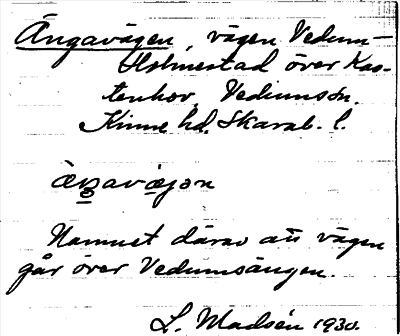 Ängavägen, vägen Vedum–
Holmestad över Kas-
tenhov, Vedumsön.
Kinne hd. Skarab. l.
Namnet därav att vägen
går över Vedumsängen.
L. Madsén 1930.